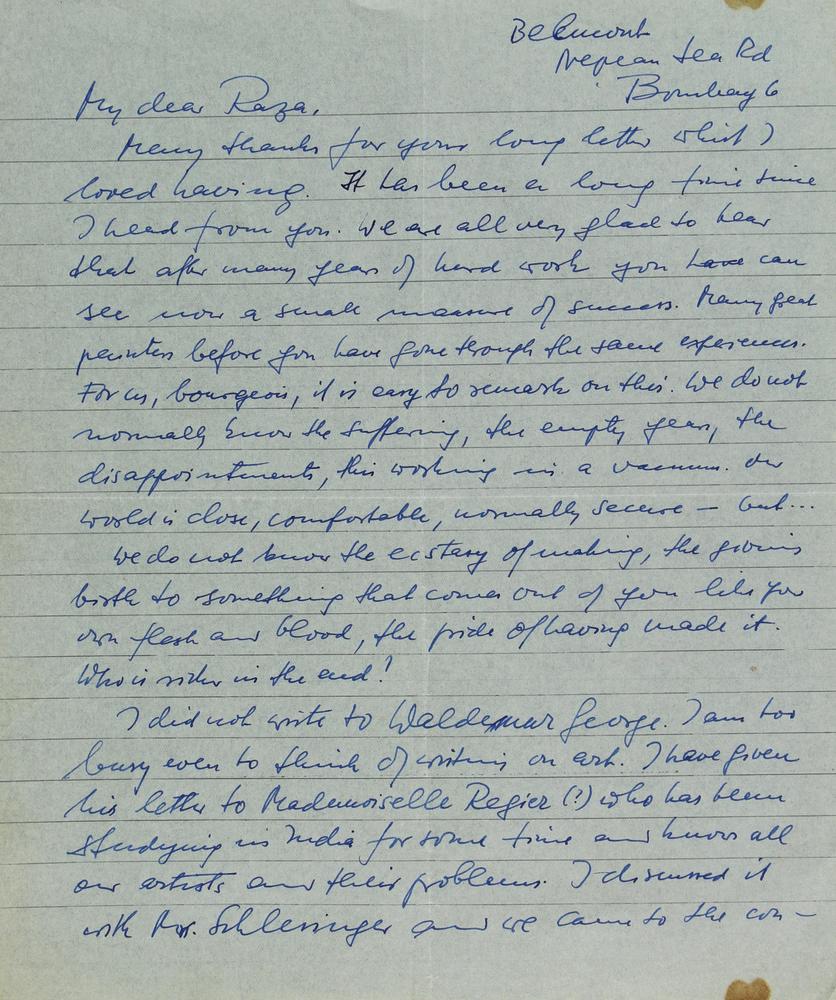 Belmont
Nepean Sea Rd
Bombay 6
My dear Raza,
Many thanks for your long letter which I
loved having. It has been a long time since
I heard from you. We are all very glad to hear
that after many years of hard work you have can
see now a small measure of success. Many great
painters before you have gone through the same experiences.
For us, bourgeois, it is easy to remark on this. We do not
normally know the suffering, the empty years, the
disappointments, this working in a vacuum. Our
world is close, comfortable, normally secure – but...
We do not know the ecstasy of making, the giving
birth to something that comes out of you like your
own flesh and blood, the pride of having made it.
Who is richer in the end?
I did not write to Waldemar George. I am too
busy even to think of writing on art. I have given
his letter to Mademoiselle Regier (?) who has been
studying in India for some time and knows all
our artists and their problems. I discussed it
with Mr. Schlesinger and we came to the con-